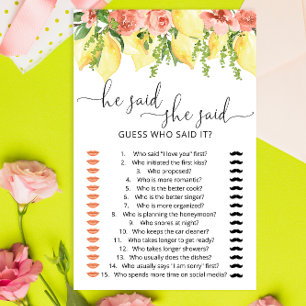 he said
she said
GUESS WHO SAID IT?
1. Who said "I love you" first?
2. Who initiated the first kiss?
3. Who proposed?
4. Who is more romantic?
5. Who is the better cook?
6. Who is the better singer?
7. Who is more organized?
8. Who is planning the honeymoon?
9. Who snores at night?
10. Who keeps the car cleaner?
11. Who takes longer to get ready?
12. Who takes longer showers?
13. Who usually does the dishes?
14. Who usually says "I am sorry" first?
15. Who spends more time on social media?